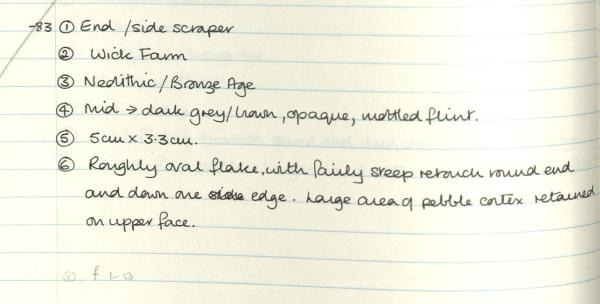 -83 ① End /side scraper
② Wick Farm
③ Neolithic/Bronze Age
④ Mid → dark grey/brown, opaque, mottled flint.
⑤ 5cm × 3.3cm.
⑥ Roughly oval flake, with fairly steep retouch round end
and down one side edge. Large area of pebble cortex retained
on upper face.
f 1-50